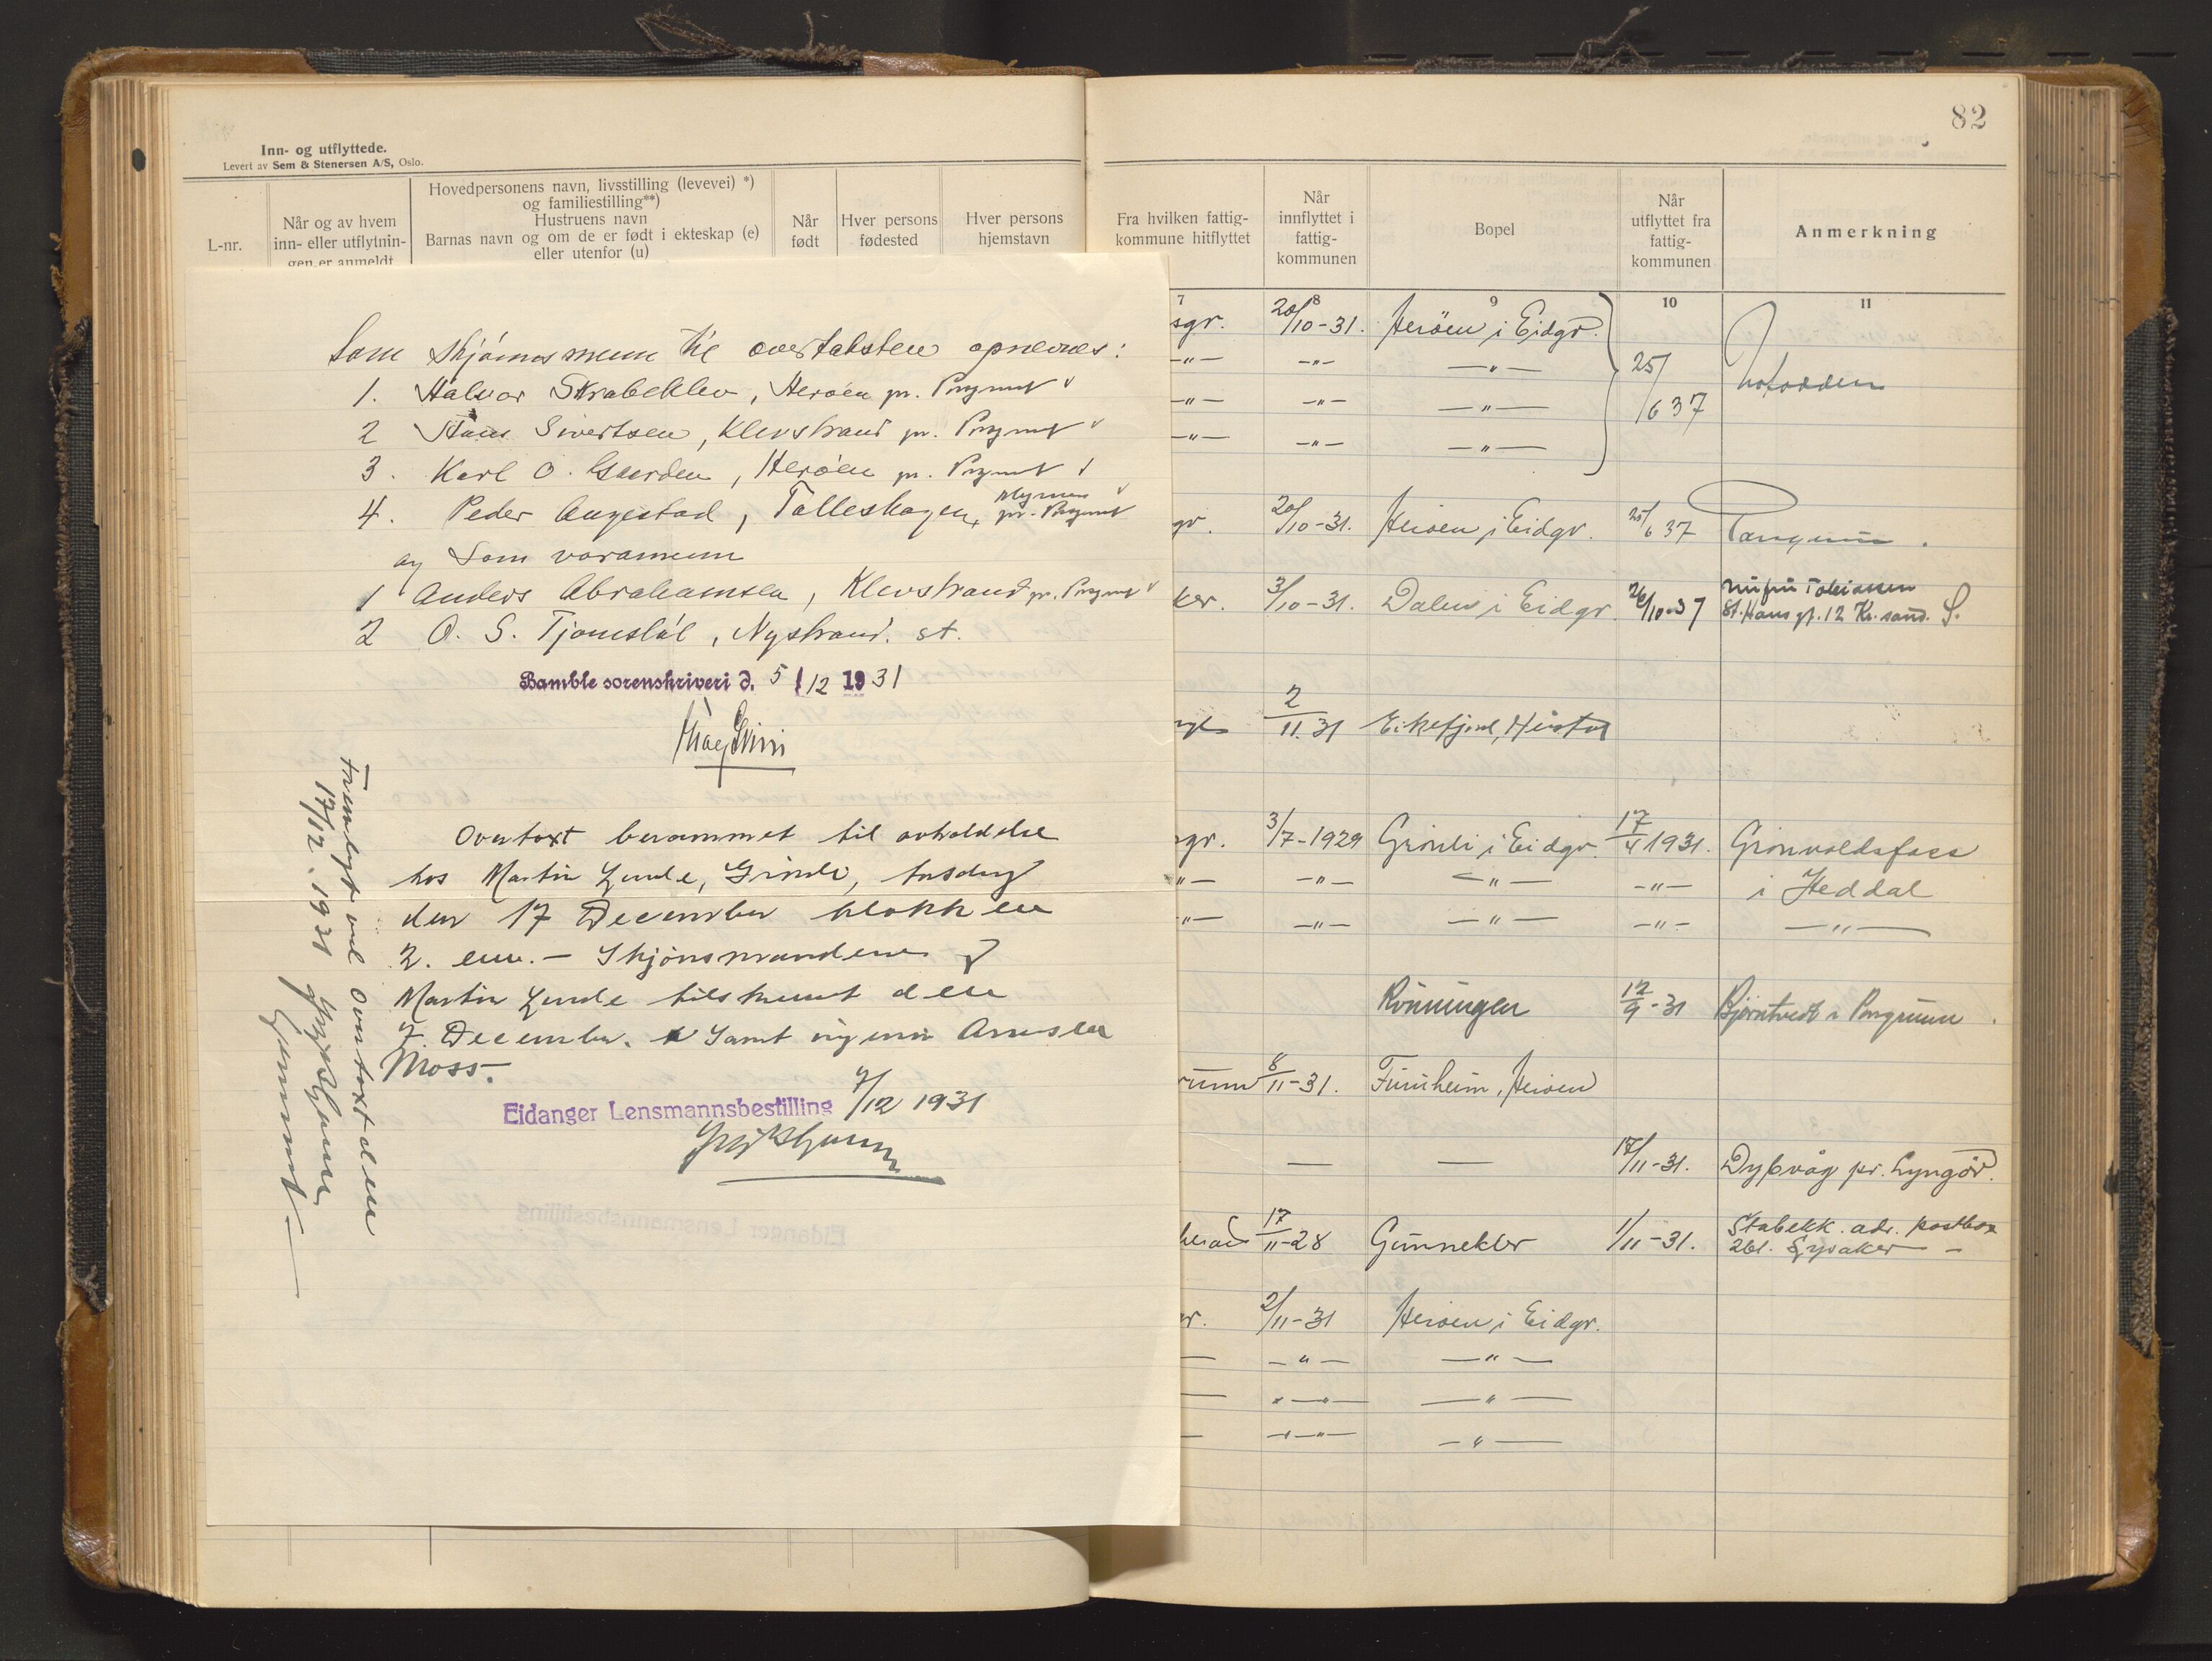 Inn- og utflyttede.
Levert av Sem & Stenersen A/S, Oslo.
L-nr.
Når og av hvem
inn- eller utflytnin-
gen er anmeldt
Hovedpersonens navn, livsstilling (levevei) *)
og familiestilling**)
Hustruens navn
Barnas navn og om de er født i ekteskap (e)
eller utenfor (u)
Når
født
Hver persons
fødested
Hver persons
hjemstavn
Som skjønnsmenn til overtaksten opnevnes:
1. Halvor Skrabeklev, Herøen pr. Porsgrunn v
2 Hans Sivertsen, Klevstrand pr. Porsgrunn v
3. Karl O. Gaarden, Herøen pr. Porsgrunn v
4. Peder Augestad, Talleskogen, pr. Porsgrunn v
og som varamenn
1 Anders Abrahamsen, Klevstrand pr. Porsgrunn v
2 O. S. Tjomslål, Nystrand. st.
Bamble sorenskriveri d. 5/12 1931
Overtaxt berammet til avholdelse
hos Martin Lunde, Grinde, torsdag
den 17 December klokken
2. em. - Skjønsmandene og
Martin Lunde tilskrevet den
7. December. Samt ingeniør Arnesen
Moss.
7/12 1931
Eidanger Lensmannsbestilling
Fremlagt ved overtaxt den
17/12. 1931
82
Fra hvilken fattig-
kommune hitflyttet
Når
innflyttet i
fattig-
kommunen
Bopel
Når
utflyttet fra
fattig-
kommunen
Anmerkning
7 8 9 10 11
sgr. 20/10-31. Herøen i Eidgr. 25/6 37 Notodden
-"- -"- -"-
-"- -"- -"-
-"- -"- -"-
gr. 20/10-31. Herøen i Eidgr. 25/6 37 Porsgrunn.
ker. 3/10-31. Dalen i Eidgr. 26/10-37 Tobiassen
St. Hans gt. 12 Kr.sand. S.
2/11.31 Eikefjord, Herøen
gr. 3/7-1929 Grønli i Eidgr. 17/4 1931. Grønvoldsfoss
"- -"- -"- -"- i Heddal
"- -"- -"- -"- -"-
Rønningen 12/9-31 Bjørntvedt i Porsgrunn.
runn 8/11-31. Furuheim, Herøen
— — 17/11-31. Dybvåg pr. Lyngør.
herad 17/11-28 Gunneklev 1/11-31. Stabekk. adr. postbox
261. Lysaker -
r. 2/11-31 Herøen i Eidgr.
— -"- -"-
— -"- -"-
— -"- -"-